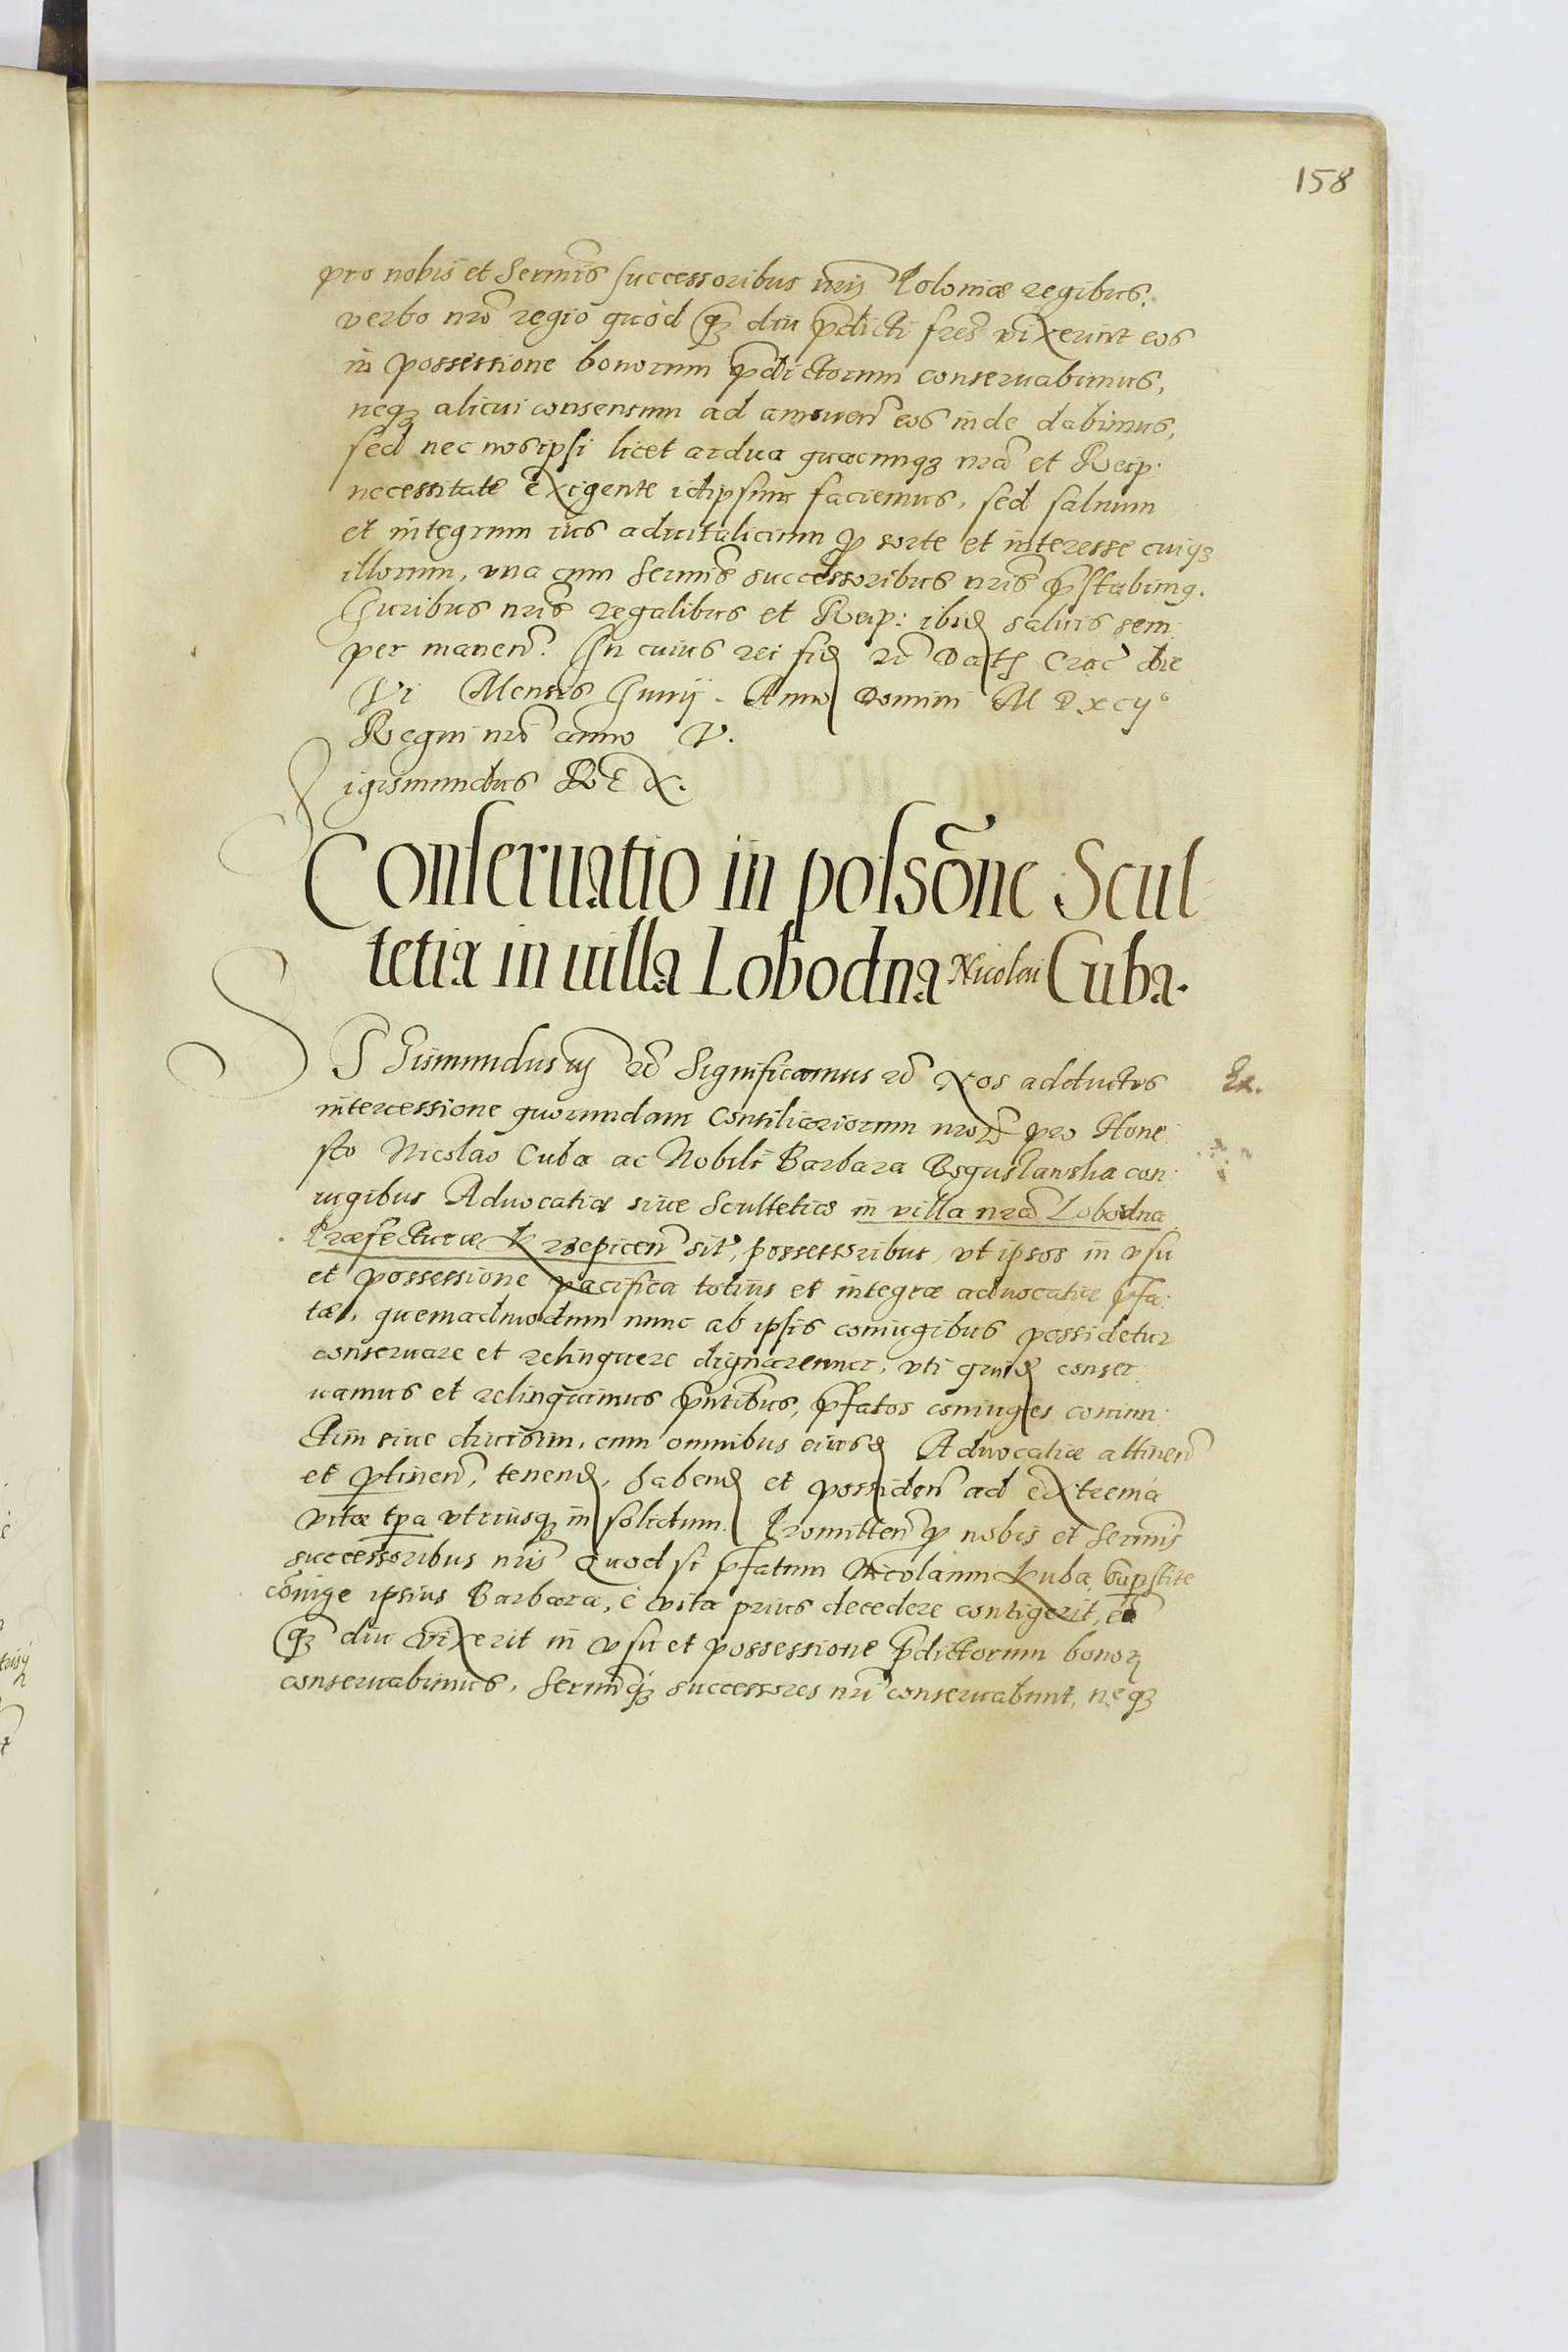 158
pro nobis et Sermis successoribus nris Poloniæ regibus.
verbo nro regio quod q̃ diu p̃dicti fres vixerint eos
in possessione bonorum p̃dictorum conseruabimus,
neq3 alicui consensum ad amouen̄ eos inde dabimus,
sed nec nos ipsi licet ardua quacunq3 nra et Reip:
necessitate exigente idipsum faciemus, sed saluum
et integrum ius aduitalicium p sorte et interesse cuiq3
illorum, vna cum Sermis successoribus nris p̃stabimq.
Juribus nris regalibus et Reip: ibid saluis sem
per manen̄. In cuius rei fid rc Dat Crac̄ die
VI Mensis Junij. Anno Domini M D xcij°
Regni nri anno V.
Sigismundus REX.
Conseruatio in possōne Scul-
tetiæ in uilla Lobodna Nicolai Cuba.
SIGismundus iij rc Significamus rc Nos adductos
Ex.
intercessione quorundam Consiliariorum nror pro Hone
sto Nicolao Cuba ac Nobili Barbara Boguslawska con
iugibus Aduocatiæ siue Scultetiæ in villa nra Lobodna
Præfecturæ Krzepicen̄ sit̃, possessoribus, vt ipsos in vsu
et possessione pacifica totius et integræ aduocatiæ p̃fa
tæ, quemadmodum nunc ab ipsis coniugibus possidetur
conseruare et relinquere dignaremur, vti quid conser
uamus et relinquimus p̃ntibus, p̃fatos coniuges coniun
ctim siue diuisim, cum omnibus eiusd Aduocatiæ attinen̄
et ptinen̄, tenend, habend et possiden̄ ad extrema
vitæ tpa vtriusq3 in solidum. Promitten̄ p nobis et Sermis
successoribus nris Quod si p̃fatum Nicolaum Kuba, supstite
cōiuge ipsius Barbara, è vita prius decedere contigerit, eā
q̃ diu vixerit in vsu et possessione p̃dictorum bonor
conseruabimus, Sermiq3 successores nri conseruabunt, neq3